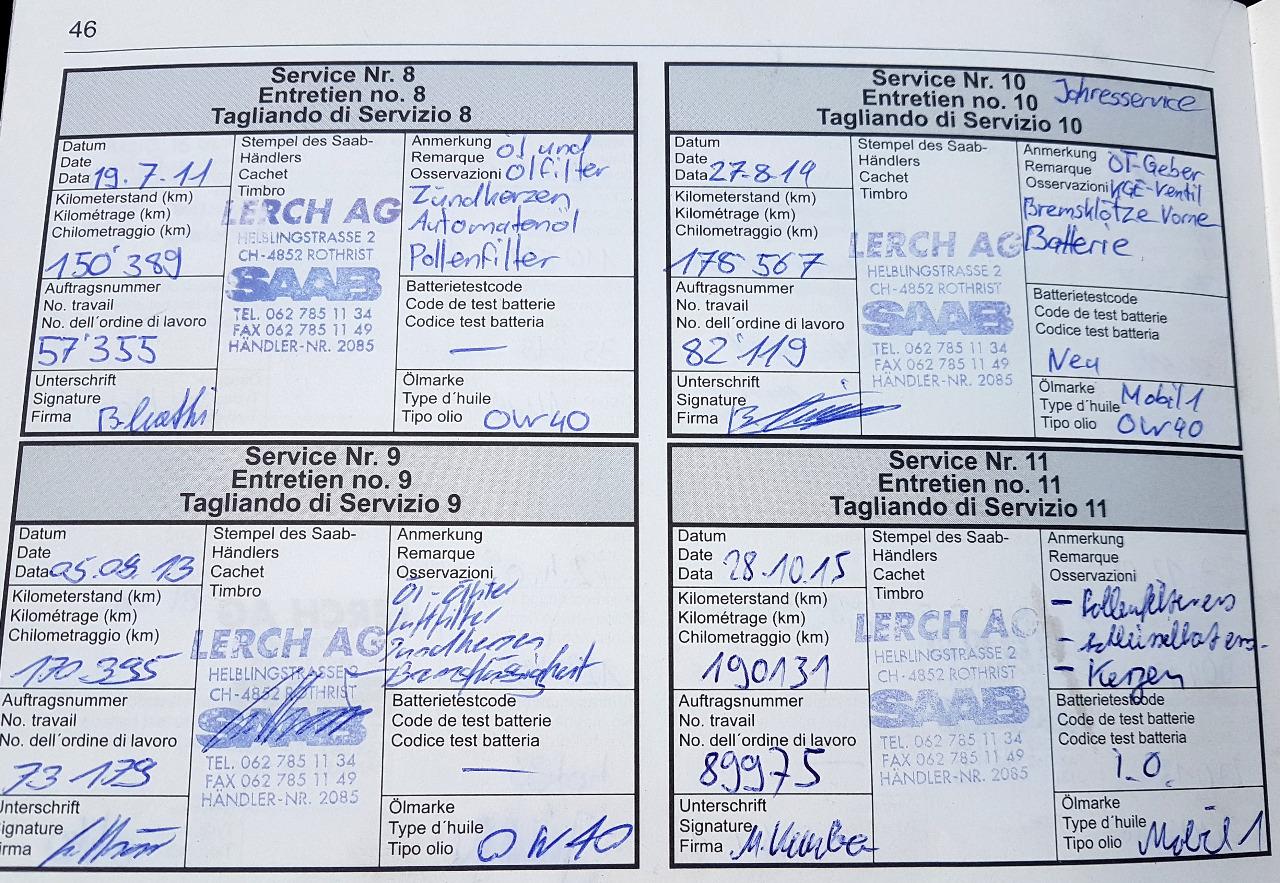 46
Service Nr. 8
Entretien no. 8
Tagliando di Servizio 8
Datum
Date
Data 19.7.11
Kilometerstand (km)
Kilométrage (km)
Chilometraggio (km)
150'389
Auftragsnummer
No. travail
No. dell´ordine di lavoro
57'355
Unterschrift
Signature
Firma
Stempel des Saab-
Händlers
Cachet
Timbro
LERCH AG
HELBLINGSTRASSE 2
CH-4852 ROTHRIST
SAAB
TEL. 062 785 11 34
FAX 062 785 11 49
HÄNDLER-NR. 2085
Anmerkung Öl und
Remarque
Osservazioni Ölfilter
Zündkerzen
Automatenöl
Pollenfilter
Batterietestcode
Code de test batterie
Codice test batteria
—
Ölmarke
Type d´huile
Tipo olio 0W40
Service Nr. 9
Entretien no. 9
Tagliando di Servizio 9
Datum
Date
Data 05.08.13
Kilometerstand (km)
Kilométrage (km)
Chilometraggio (km)
170.395
Auftragsnummer
No. travail
No. dell´ordine di lavoro
73 179
Unterschrift
Signature
Firma
Stempel des Saab-
Händlers
Cachet
Timbro
LERCH AG
HELBLINGSTRASSE 2
CH-4852 ROTHRIST
SAAB
TEL. 062 785 11 34
FAX 062 785 11 49
HÄNDLER-NR. 2085
Anmerkung
Remarque
Osservazioni
Öl-Ölfilter
Luftfilter
Zündkerzen
Bremsflüssigkeit
Batterietestcode
Code de test batterie
Codice test batteria
—
Ölmarke
Type d´huile
Tipo olio 0W40
Service Nr. 10
Entretien no. 10 Jahresservice
Tagliando di Servizio 10
Datum
Date
Data 27.8.14
Kilometerstand (km)
Kilométrage (km)
Chilometraggio (km)
178 567
Auftragsnummer
No. travail
No. dell´ordine di lavoro
82'119
Unterschrift
Signature
Firma
Stempel des Saab-
Händlers
Cachet
Timbro
LERCH AG
HELBLINGSTRASSE 2
CH-4852 ROTHRIST
SAAB
TEL. 062 785 11 34
FAX 062 785 11 49
HÄNDLER-NR. 2085
Anmerkung
Remarque OT-Geber
Osservazioni KGE-Ventil
Bremsklötze Vorne
Batterie
Batterietestcode
Code de test batterie
Codice test batteria
Neu
Ölmarke
Type d´huile Mobil 1
Tipo olio 0W40
Service Nr. 11
Entretien no. 11
Tagliando di Servizio 11
Datum
Date
Data 28.10.15
Kilometerstand (km)
Kilométrage (km)
Chilometraggio (km)
190131
Auftragsnummer
No. travail
No. dell´ordine di lavoro
89975
Unterschrift
Signature
Firma
Stempel des Saab-
Händlers
Cachet
Timbro
LERCH AG
HELBLINGSTRASSE 2
CH-4852 ROTHRIST
SAAB
TEL. 062 785 11 34
FAX 062 785 11 49
HÄNDLER-NR. 2085
Anmerkung
Remarque
Osservazioni
- Kerzen
Batterietestcode
Code de test batterie
Codice test batteria
i.O.
Ölmarke
Type d´huile
Tipo olio Mobil 1